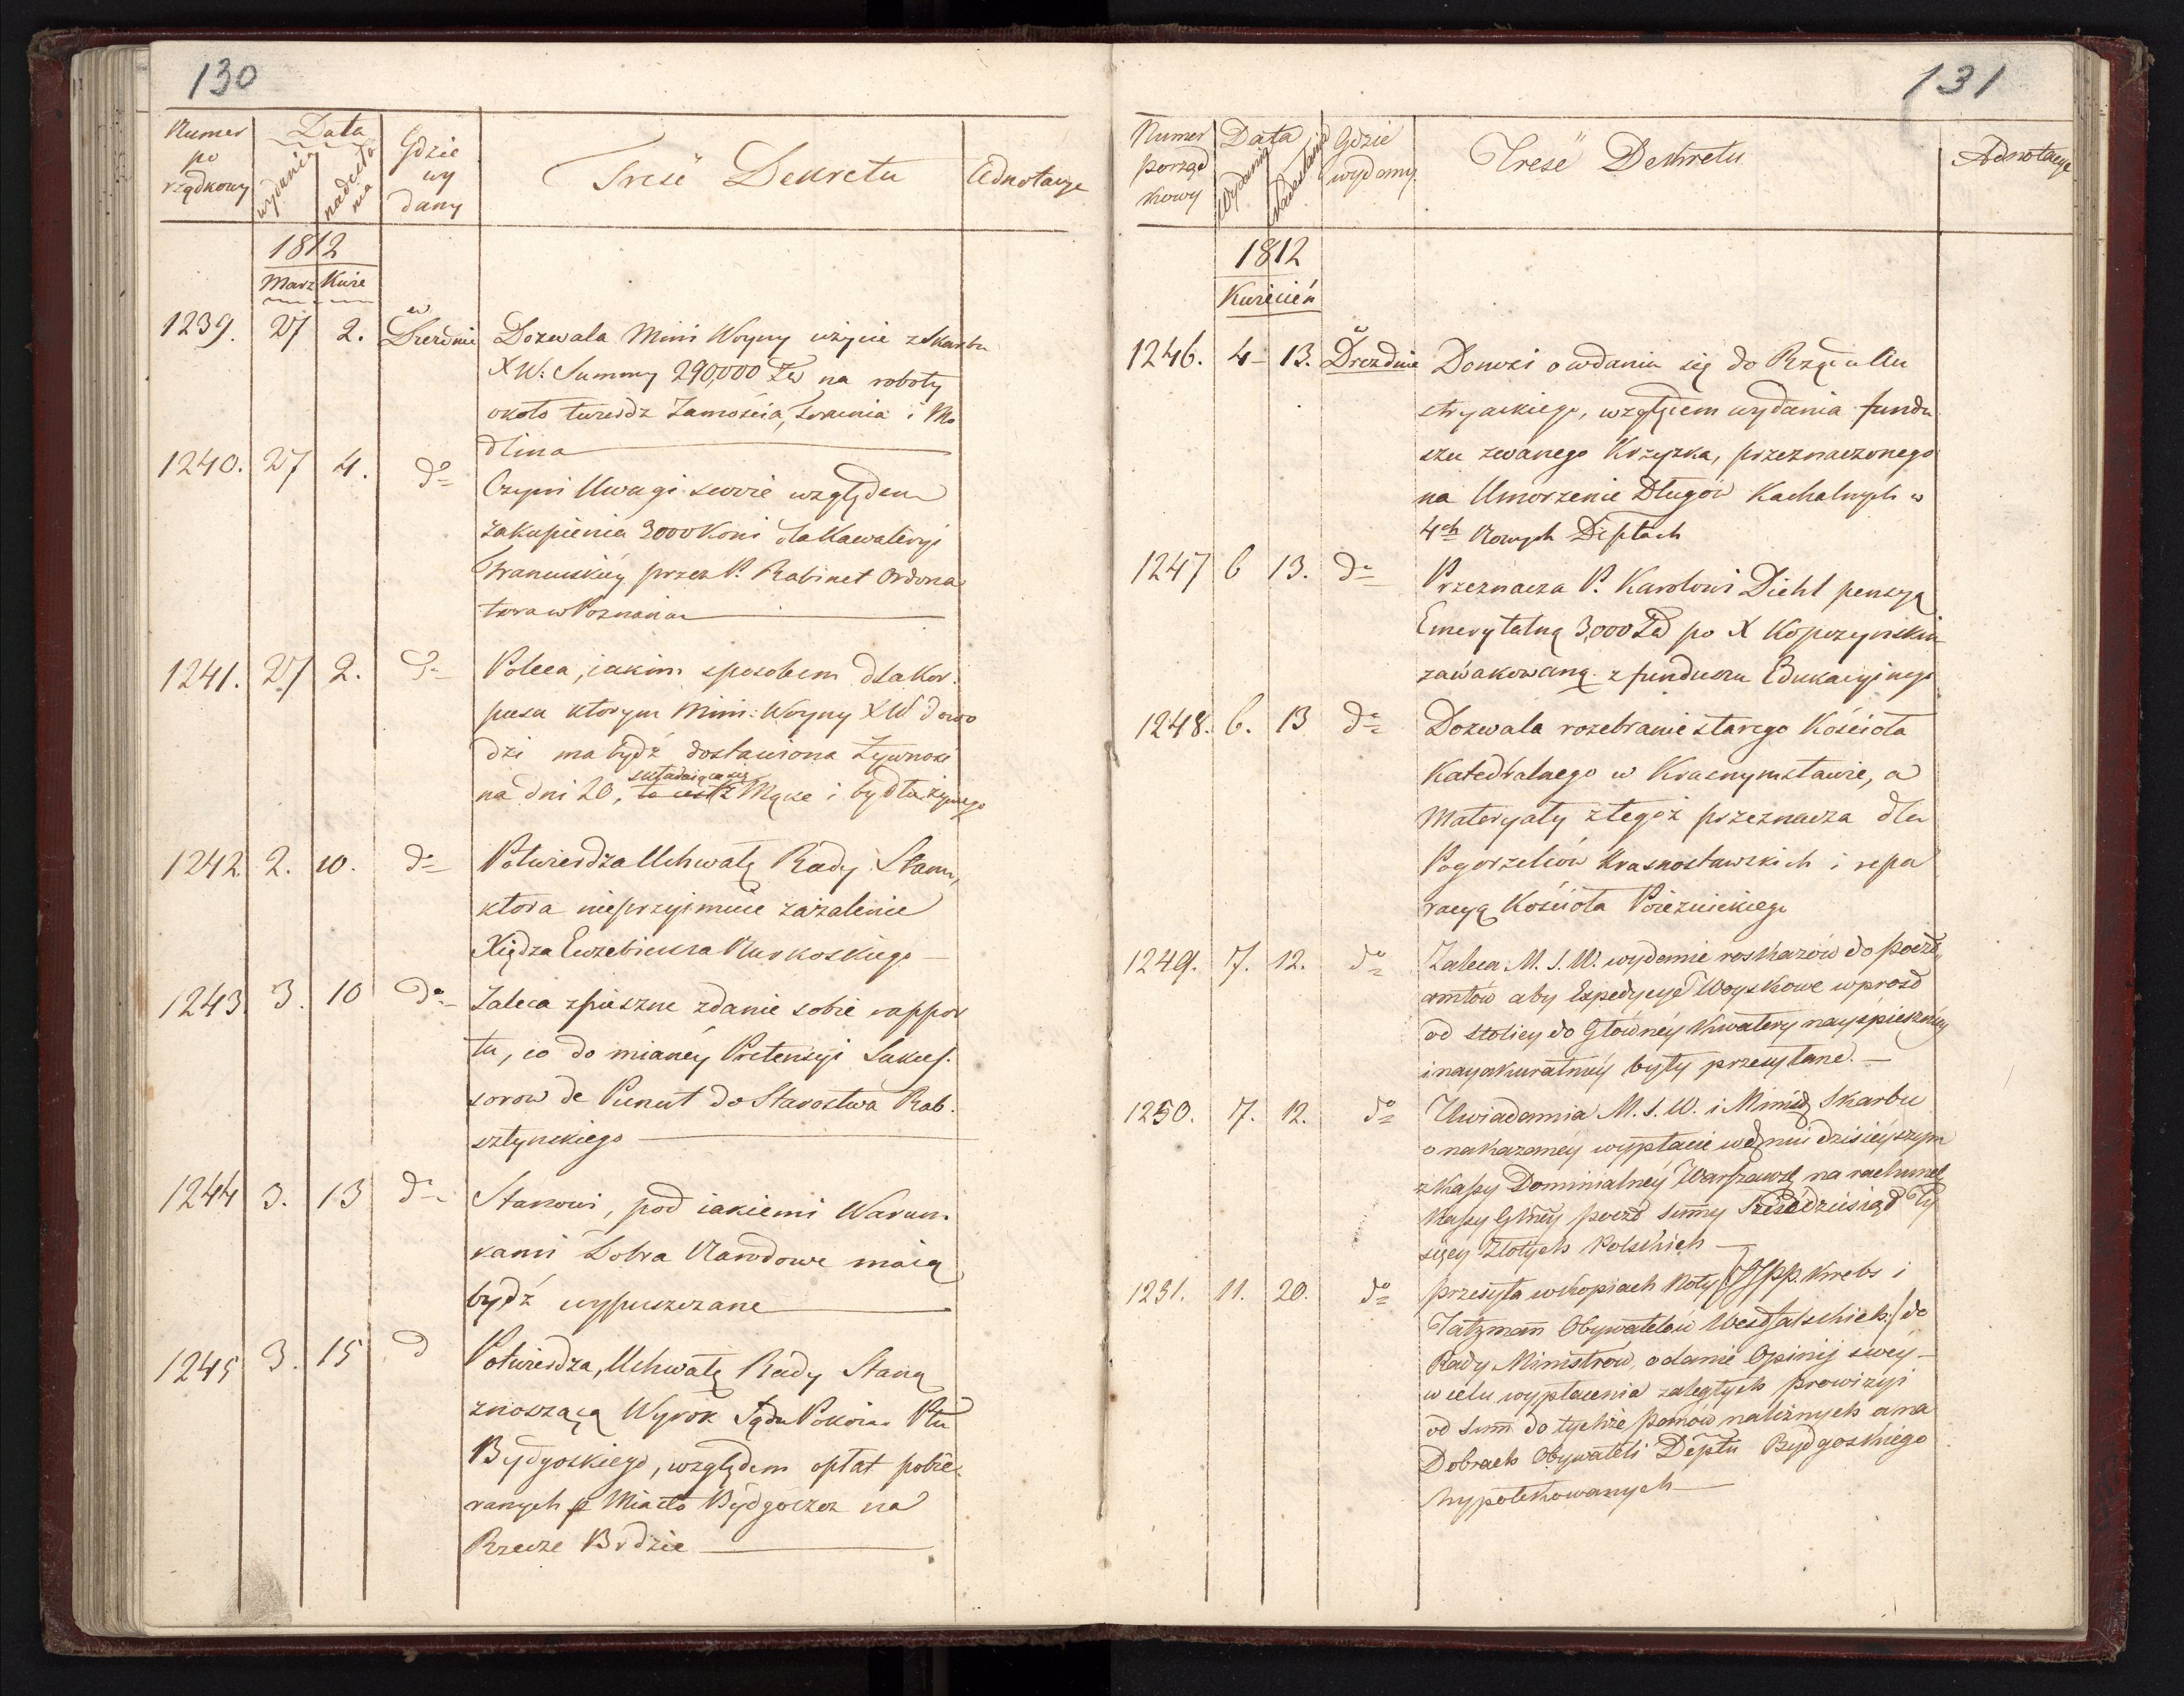 130
Numer po rządkowy | Data wydania | nadesła nia | Gdzie wy dany | Treść Dekretu | Adnotacye
1812
Marz Kwie
1239. 27 2. w Dreźnie Dozwala Mini Woyny użycie z Skarbu
XW: Summy 290,000 Zł na roboty
około twierdz Zamościa, Torunia i Mo
dlina
1240. 27 4. do Czyni Uwagi swoie względem
zakupienia 3000 Koni dla Kawaleryi
Francuskiéy przez P. Rabinet Ordona
tora w Poznaniu
1241. 27 2. do Poleca, iakim sposobem dla Kor:
pusu ktorym Mini: Woyny XW dowo
dzi ma bydź dostawiona Żywność
składaiąca się
na dni 20, to iest z Mąki i bydła żywego
1242 2. 10. do Potwierdza Uchwałę Rady Stanu,
ktora nieprzyimuie zażalenie
Xiędza Euzebiusza Kurkoskiego
1243. 3. 10 do Zaleca spieszne zdanie sobie rappor
tu, co do mianéy Pretensyi Sukces:
sorow de Punut do Starostwa Rab:
sztynskiego
1244 3. 13 do Stanowi, pod iakiemi Warun:
kami Dobra Narodowe maią
bydź wypuszczane
1245 3. 15 d Potwierdza, Uchwałę Rady Stanu
znoszącą Wyrok Sądu Pokoiu Ptu
Bydgoskiego, względem opłat pobie:
ranych p Miasto Bydgoszcz na
Rzecze Brdzie
131
Numer porząd kowy | Data Wydania | Nadesłania | Gdzie wydany | Treść Dekretu | Adnotacye
1812
Kwiecień
1246. 4 – 13. w Dreźdnie Donosi o wdaniu się do Rządu Au
stryackiego, względem wydania fundu
szu zwanego Krzyzka, przeznaczonego
na Umorzenie Długów Kachalnych w
4ch Nowych Dēptach
1247 6 13. do Przeznacza P. Karolowi Diehl pensyą
Emerytalną 3,000 Zł po X Kopczynskim
zawakowaną z funduszu Edukacyinego
1248. 6. 13 do Dozwala rozebranie starego Kościoła
Katedralnego w Krasnymstawie, a
Materyały z tegoż przeznacza dla
Pogorzelców Krasnostawskich i repa
racyą Kościoła Poiezuickiego
1249. 7. 12. do Zaleca M. S. W. wydanie roskazów do poczt,
amtów aby Expedycye Woyskowe wprost
od Stolicy do Głównéy Kwatery nayśpieszniéy
i nayakuratniéy były przesyłane. –
1250. 7. 12. do Uwiadamia M. S. W. i Minist Skarbu
o nakazanéy wypłacie w dniu dzisiéyszym
z Kassy Dominialnéy Warszawsk na rachunek
Kassy Głnéy poczt Summy Sześćdziesiąt Ty
sięcy Złotych Polskich
1251. 11. 20. do przesyła w Kopiach Noty /JPP. Krebs i
Tatzmann Obywatelów Westfalskich/ do
Rady Ministrów, o danie Opinij swéy –
w celu wypłacenia zaległych prowizyi
od Summ do tychże panów należnych a na
Dobrach Obywateli Deptu Bydgoskiego
hypotekowanych